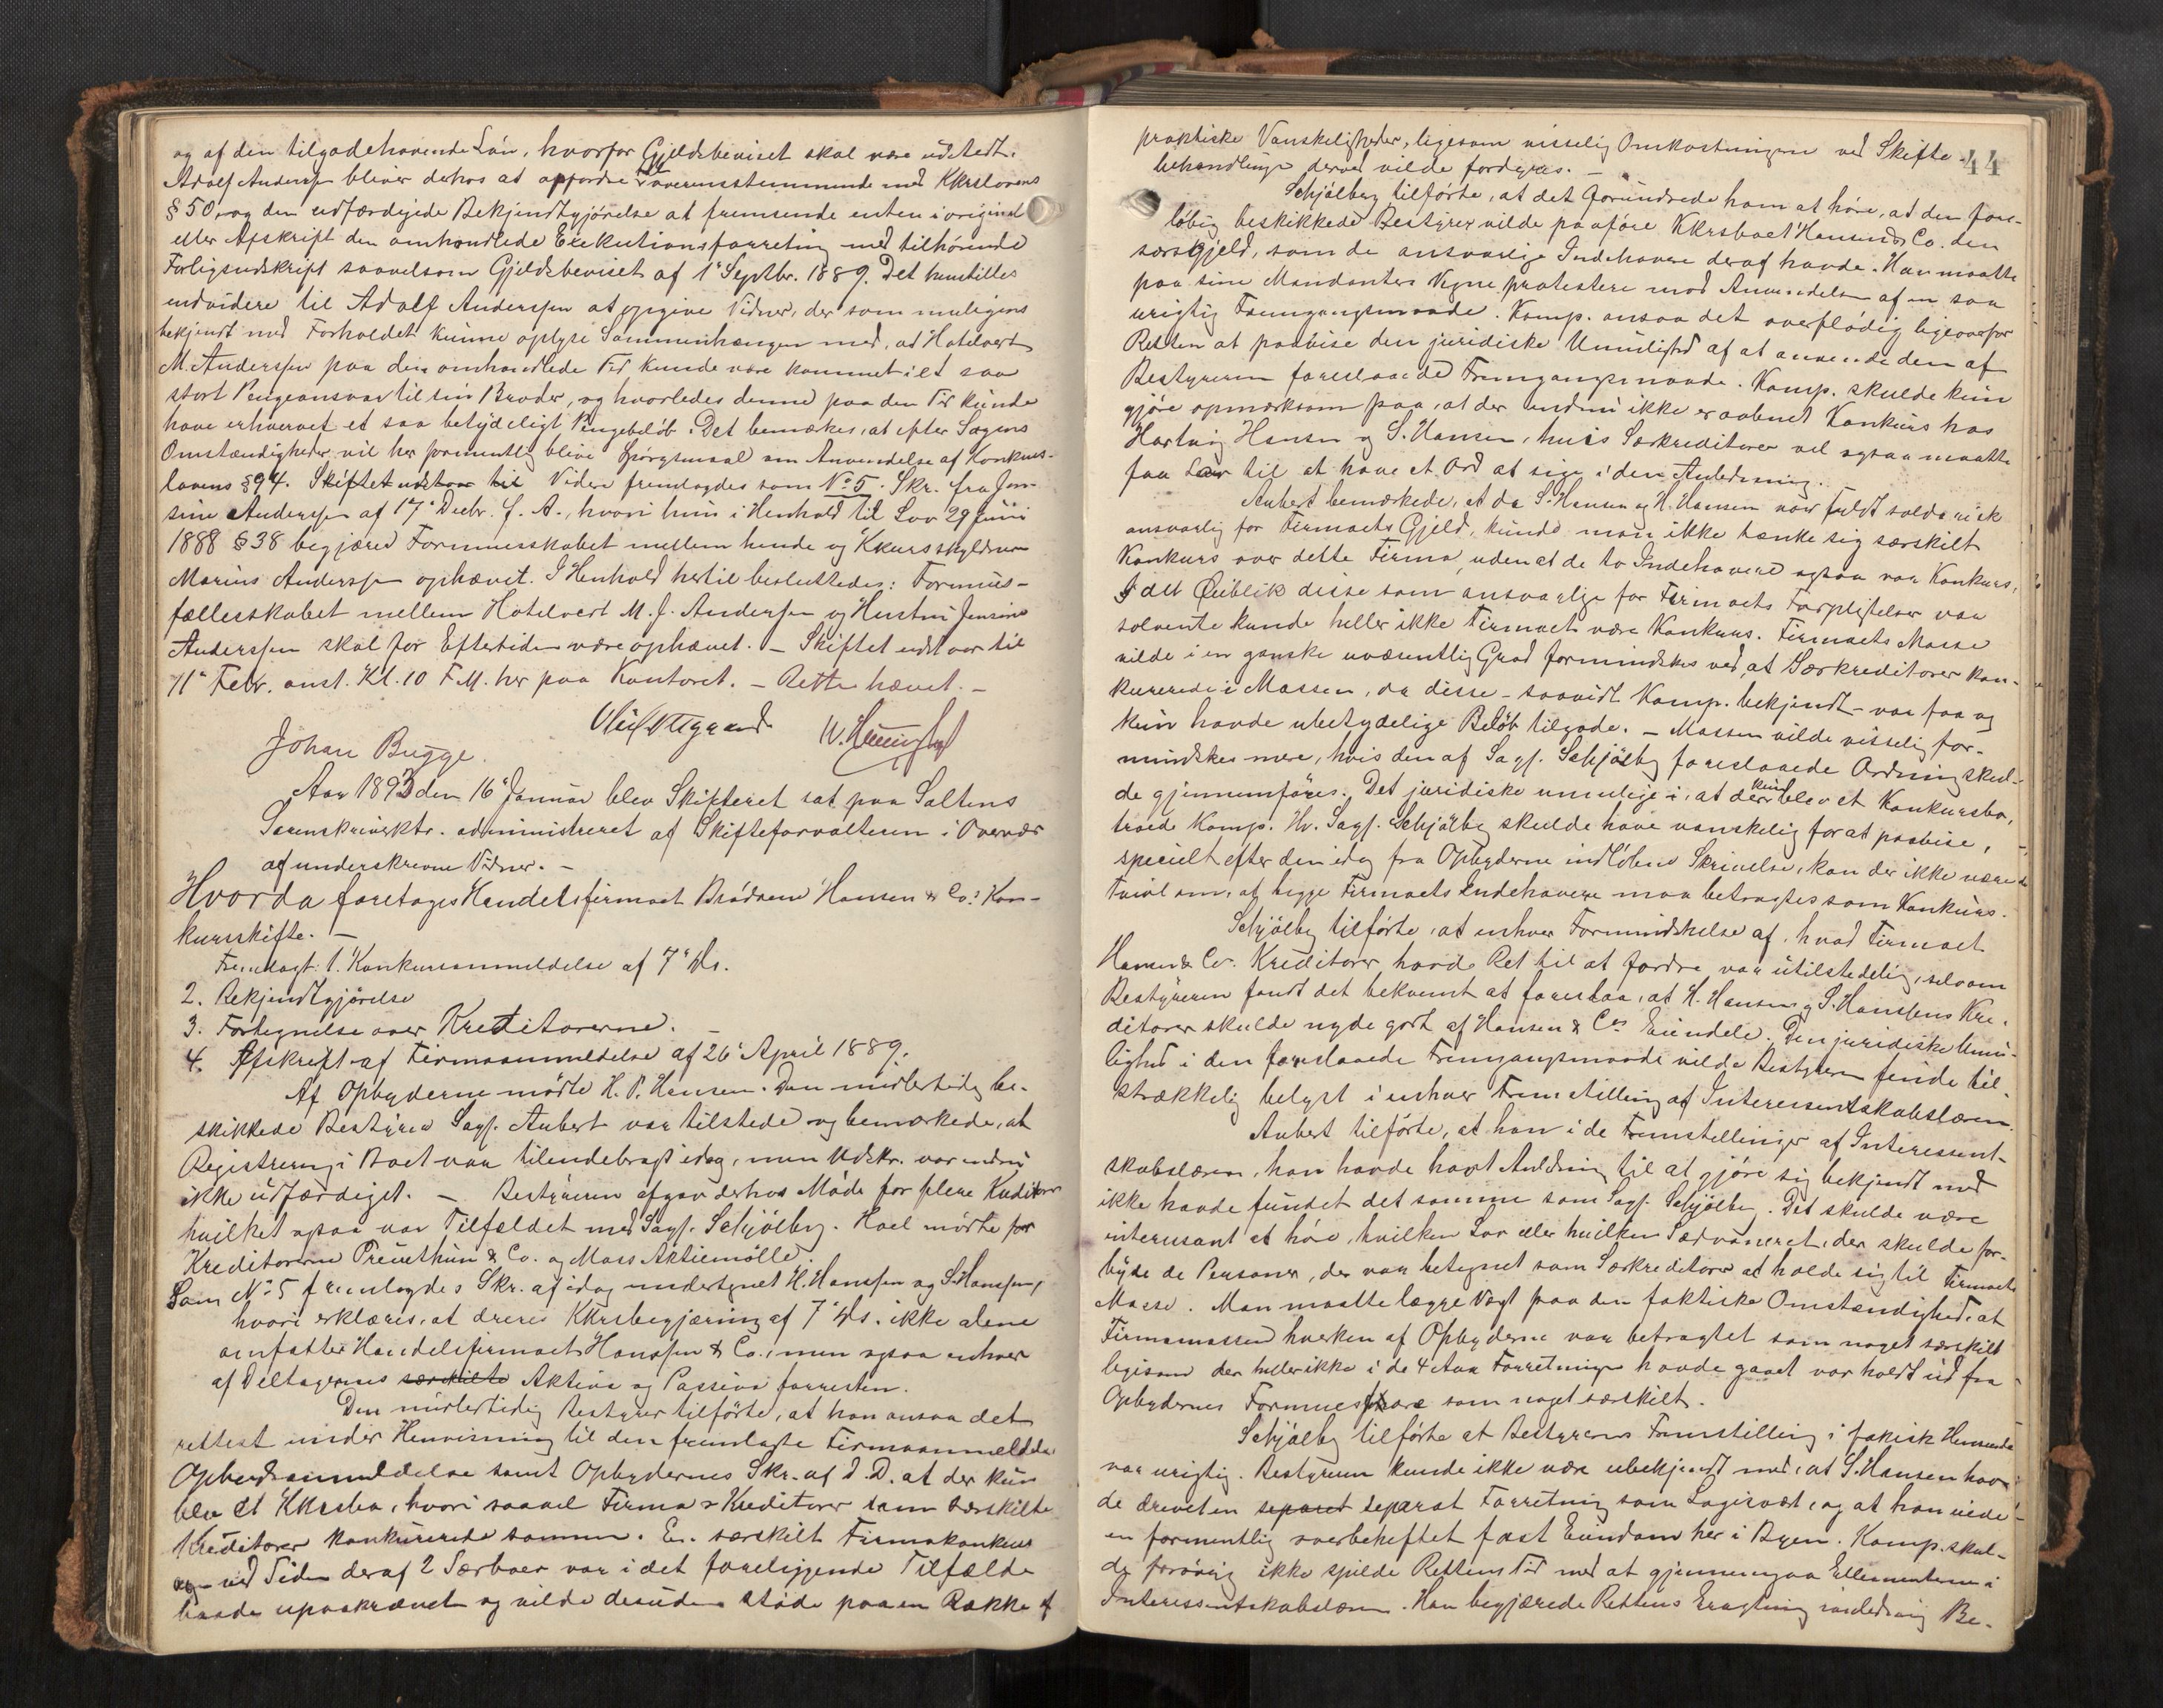 og af den tilgodehavende Lön, hvorfor Gjeldsbeviset skal være udstedt.
Adolf Anderssen bliver derhos at opfordre til overensstemmende med Kkrslovens
§ 50, og den udfærdigede Bekjendtgjörelse at fremsende enten i original
eller Afskrift den omhandlede Exekutionsforretning med tilhörende
Forligsudskrift saavelsom Gjeldsbeviset af 1' Septbr. 1889. Det henstilles
endvidere til Adolf Anderssen at opgive Vidner, der som muligens
bekjendt med Forholdet kunne oplyse Sammenhængen med, at Hotelvert
M. Anderssen paa den omhandlede Tid kunde være kommet i et saa
stort Pengeansvar til sin Broder, og hvorledes denne paa den Tid kunde
have erhvervet et saa betydeligt Pengebelöb. Det bemærkes, at efter Sagens
Omstændigheder vil her formentlig blive Spörgsmaal om Anvendelse af Konkurs-
lovens § 94. Skiftet udstaar til Videre fremlagdes som No 5. Skr. fra Jen-
sine Anderssen af 17' Decbr. f. A., hvori hun i Henhold til Lov 29 Juni
1888 § 38 begjærer Formuesskabet mellem hende og Kkursskyldneren
Marius Anderssen ophævet. I Henhold hertil besluttedes: Formues-
fællesskabet mellem Hotelvert M. J. Anderssen og Hustru Jensine
Anderssen skal for Eftertiden være ophævet. – Skiftet udstaar til
11' Febr. anst. Kl. 10 F.M. her paa Kontoret. – Retten hævet. –
Johan Bugge.
Aar 1893 den 16' Januar blev Skifteret sat paa Saltens
Sorenskriverktr. administreret af Skifteforvalteren i Overvær
af underskrevne Vidner. –
Hvorda foretoges Handelsfirmaet Brödrene Hansen & Co.s Kon-
kursskifte. –
Fremlagt: 1. Konkursanmeldelse af 7' ds.
2. Bekjendtgjörelse
3. Fortegnelse over Kreditorerne. –
4. Afskrift af Firmaanmeldelse af 26' April 1889.
Af Opbyderne mödte H. P. Hansen. Den midlertidig be-
skikkede Bestyrer Sagf. Aubert var tilstede og bemærkede, at
Registrering i Boet var tilendebragt idag, men Udskr. var endnu
ikke udfærdiget. – Bestyreren afgav derhos Möde for flere Kreditorer
hvilket ogsaa var Tilfældet med Sagf. Schjölberg. Hoel mödte for
Kreditorerne Preusthun & Co. og Moss Aktiemölle.
Som No 5 fremlagdes Skr. af idag undertegnet H. Hanssen og S. Hanssen,
hvori erklæres, at deres Kkrsbegjæring af 7' ds. ikke alene
omfatter Handelsfirmaet Hanssen & Co., men ogsaa enhver
af Deltagernes særskilte Aktiva og Passiva forresten.
Den midlertidig Bestyrer tilförte, at han ansaa det
rettest under Henvisning til den fremlagte Firmaanmeldelse
Opbudsanmeldelse samt Opbydernes Skr. af d. D. at der kun
blev et Kkrsbo, hvori saavel Firmaes Kreditorer som Særskilte
Kreditorer konkurerede sammen. En særskilt Firmakonkurs
og ved Siden deraf 2 Særboer var i det foreliggende Tilfælde
baade upaakrævet og vilde desuden stöde paa en Række af
44
praktiske Vanskeligheder, ligesom visselig Omkostningerne ved Skifte-
behandlingen derved vilde fordyres. –
Schjölberg tilförte, at det forundrede ham at höre, at den fore-
löbig beskikkede Bestyrer vilde paaföre Kkrsboet Hansen & Co. den
særsgjeld, som de ansvarlige Indehavere deraf havde. Han maatte
paa sine Mandanters Vegne protestere mod Anvendelsen af en saa
urigtig Fremgangsmaade. Komp. ansaa det overflödig ligeoverfor
Retten at paavise den juridiske Umulighed af at anvende den af
Bestyreren foreslaaede Fremgangsmaade. Komp. skulde kun
gjöre opmærksom paa, at der endnu ikke er aabnet Konkurs hos
Hartvig Hansen og S. Hansen, hvis Særkreditorer vel ogsaa maatte
faa Lov til at have et Ord at sige i den Anledning.
Aubert bemærkede, at da S. Hansen og H. Hansen var fuldt solidarisk
ansvarlig for Firmaets Gjeld, kunde man ikke tænke sig særskilt
Konkurs over dette Firma, uden at de to Indehavere ogsaa var Konkurs,
I det Öieblik disse som ansvarlige for Firmaets Forpligtelser var
solvente kunde heller ikke Firmaet være Konkurs. Firmaets Masse
vilde i en ganske uvæsentlig Grad formindskes ved, at Særkreditorer kon-
kurerede i Massen, da disse – saavidt Komp. bekjendt – var faa og
kun havde ubetydelige Belöb tilgode. – Massen vilde visselig for-
mindskes mere, hvis den af Sagf. Schjölberg foreslaaede Ordning skul-
de gjennemföres. Det juridiske umulige i, at der kun blev et Konkursbo,
troede Komp. Hr. Sagf. Schjölberg skulde have vanskelig for at paavise,
specielt efter den idag fra Opbyderne indlöbne Skrivelse, kan der ikke være
Tvivl om, at begge Firmaets Indehavere maa betragtes som Konkurs.
Schjölberg tilförte, at enhver Formindskelse af, hvad Firmaet
Hansen & Co. Kreditorer havde Ret til at fordre, var utilstedelig, selvom
Bestyreren fandt det bekvemt at foreslaa, at H. Hansens og S. Hanssens Kre-
ditorer skulde nyde godt af Hansen & Co's Eiendele. Den juridiske Umu-
lighed i den foreslaaede Fremgangsmaade vilde Bestyreren finde til-
strækkelig belyst i enhver Fremstilling af Interessentskabslæren.
Aubert tilförte, at han i de Fremstillinger af Interessent-
skabslæren, han havde havt Anledning til at gjöre sig bekjendt med
ikke havde fundet det samme som Sagf. Schjölberg. Det skulde være
interessant at höre, hvilken Lov eller hvilken Sædvaneret, der skulde for-
byde de Personer, der var betegnet som Særkreditorer at holde sig til Firmaets
Masse. Man maatte lægge Vægt paa den faktiske Omstændighed, at
Firmamassen hverken af Opbyderne var betragtet som noget særskilt
ligesom der heller ikke i de 4 Aar Forretningen havde gaaet var holdt ud fra
Opbydernes Formuesfære som noget særskilt.
Schjölberg tilförte at Bestyrerens Fremstilling i fakisk Henseende
var urigtig. Bestyreren kunde ikke være ubekjendt med, at S. Hansen hav-
de drevet en separat separat Forretning som Logivært, og at han eiede
en formentlig overbeheftet fast Eiendom her i Byen. Komp. skul-
de forövrig ikke spilde Rettens Tid med at gjennemgaa Ellementerne i
Interessentskabslæren. Han begjærede Rettens Eragtning angaaende Be-